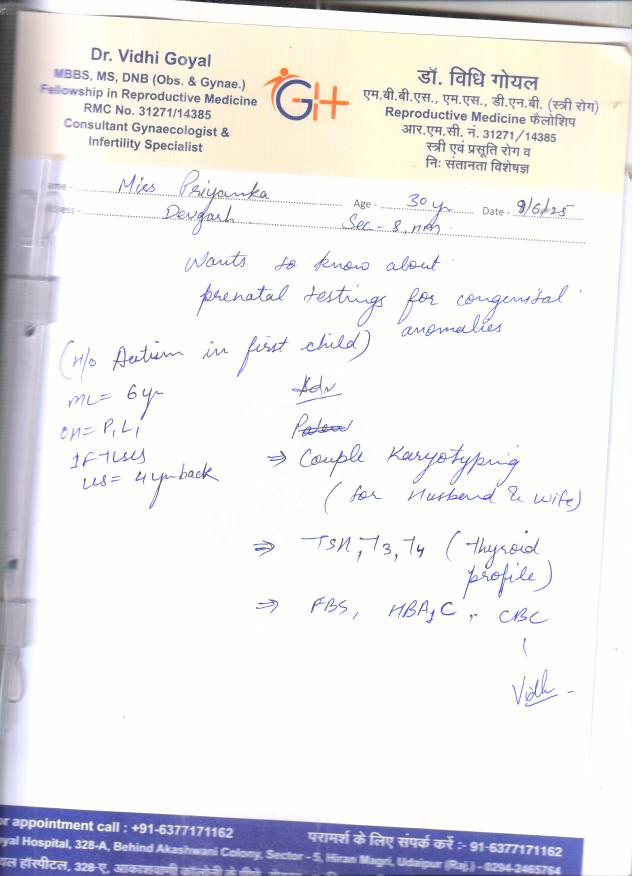 Dr. Vidhi Goyal
MBBS, MS, DNB (Obs. & Gynae.)
Fellowship in Reproductive Medicine
RMC No. 31271/14385
Consultant Gynaecologist &
Infertility Specialist
GH
डॉ. विधि गोयल
एम.बी.बी.एस., एम.एस., डी.एन.बी. (स्त्री रोग)
Reproductive Medicine फैलोशिप
आर.एम.सी. नं. 31271/14385
स्त्री एवं प्रसूति रोग व
निः संतानता विशेषज्ञ
Miss Priyanka Age - 30 yr Date - 9/6/25
Devgarh Sec - 8,
Wants to know about
prenatal testings for congenital
anomalies
(H/o Autism in first child)
ML = 6 yr
OH = P1L1
1 FTLSCS
LCB = 4 yr back
Adv
⇒ Couple Karyotyping
(for Husband & Wife)
⇒ TSH, T3, T4 (Thyroid
profile)
⇒ FBS, HBA1C, CBC
Vidhi
or appointment call : +91-6377171162
परामर्श के लिए संपर्क करें :- 91-6377171162
oyal Hospital, 328-A, Behind Akashwani Colony, Sector - 5, Hiran Magri, Udaipur (Raj.) - 0294-2465764
यल हॉस्पीटल, 328-ए, आकाशवाणी कॉलोनी के पीछे,